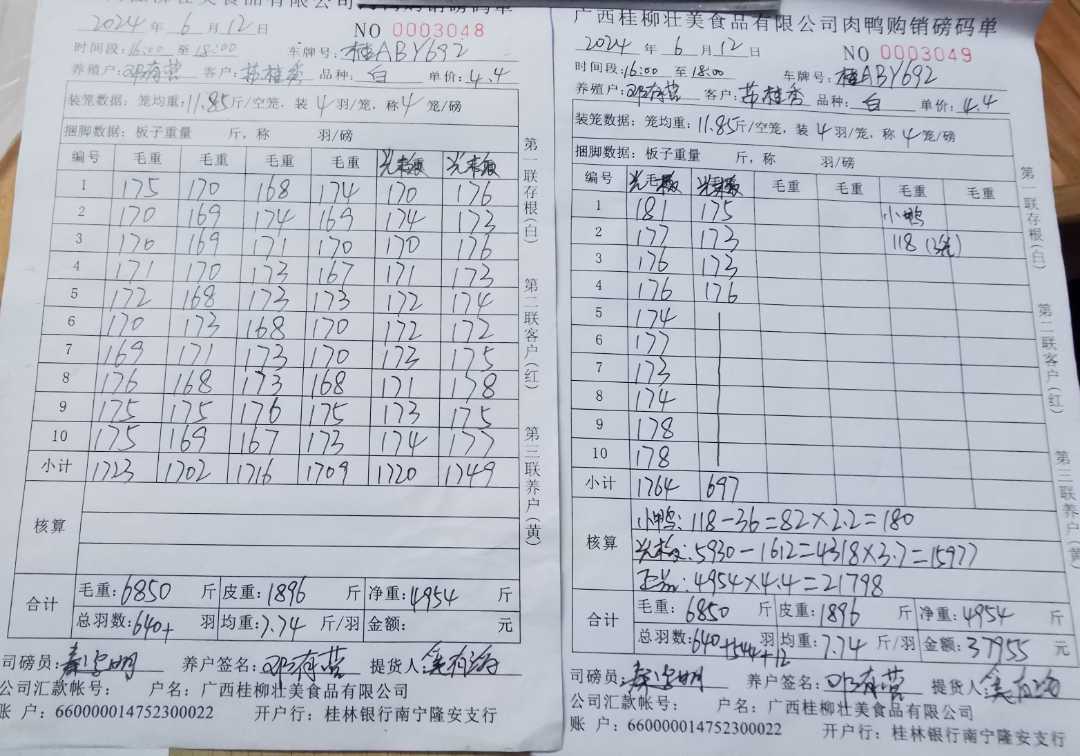 广西桂柳壮美食品有限公司肉鸭购销磅码单
2024 年 6 月 12 日 NO 0003048
时间段:16:00 至 18:00 车牌号:桂ABY692
养殖户:邓有营 客户: 品种:白 单价:4.4
装笼数据: 笼均重:11.85斤/空笼,装 4 羽/笼,称 4 笼/磅
捆脚数据: 板子重量 斤,称 羽/磅
编号 毛重 毛重 毛重 毛重
1 175 170 168 174 170 176
2 170 169 174 169 174 173
3 170 169 171 170 170 176
4 171 170 173 167 171 173
5 172 168 173 173 172 174
6 170 173 168 170 172 172
7 169 171 173 170 173 175
8 176 168 173 168 171 178
9 175 175 176 175 173 175
10 175 169 167 173 174 177
小计 1723 1702 1716 1709 1720 1749
核算
合计 毛重:6850 斤 皮重:1896 斤 净重:4954 斤
总羽数:640+ 羽 均重:7.74 斤/羽 金额: 元
司磅员: 养户签名:邓有营 提货人:
公司汇款帐号: 户名:广西桂柳壮美食品有限公司
账 户:660000014752300022 开户行:桂林银行南宁隆安支行
第一联存根(白)
第二联客户(红)
第三联养户(黄)
广西桂柳壮美食品有限公司肉鸭购销磅码单
2024 年 6 月 12 日 NO 0003049
时间段:16:00 至 18:00 车牌号:桂ABY692
养殖户:邓有营 客户: 品种:白 单价:4.4
装笼数据: 笼均重:11.85斤/空笼,装 4 羽/笼,称 4 笼/磅
捆脚数据: 板子重量 斤,称 羽/磅
编号 毛重 毛重 毛重 毛重
1 181 175 小鸭
2 177 173 118
3 176 173
4 176 176
5 174
6 177
7 173
8 174
9 178
10 178
小计 1764 697
核算 小鸭:118-36=82×2.2=180
5930-1612=4318×3.7=15977
正品:4954×4.4=21798
合计 毛重:6850 斤 皮重:1896 斤 净重:4954 斤
总羽数:640+544+12 羽 均重:7.74 斤/羽 金额:37955 元
司磅员: 养户签名:邓有营 提货人:
公司汇款帐号: 户名:广西桂柳壮美食品有限公司
账 户:660000014752300022 开户行:桂林银行南宁隆安支行
第一联存根(白)
第二联客户(红)
第三联养户(黄)